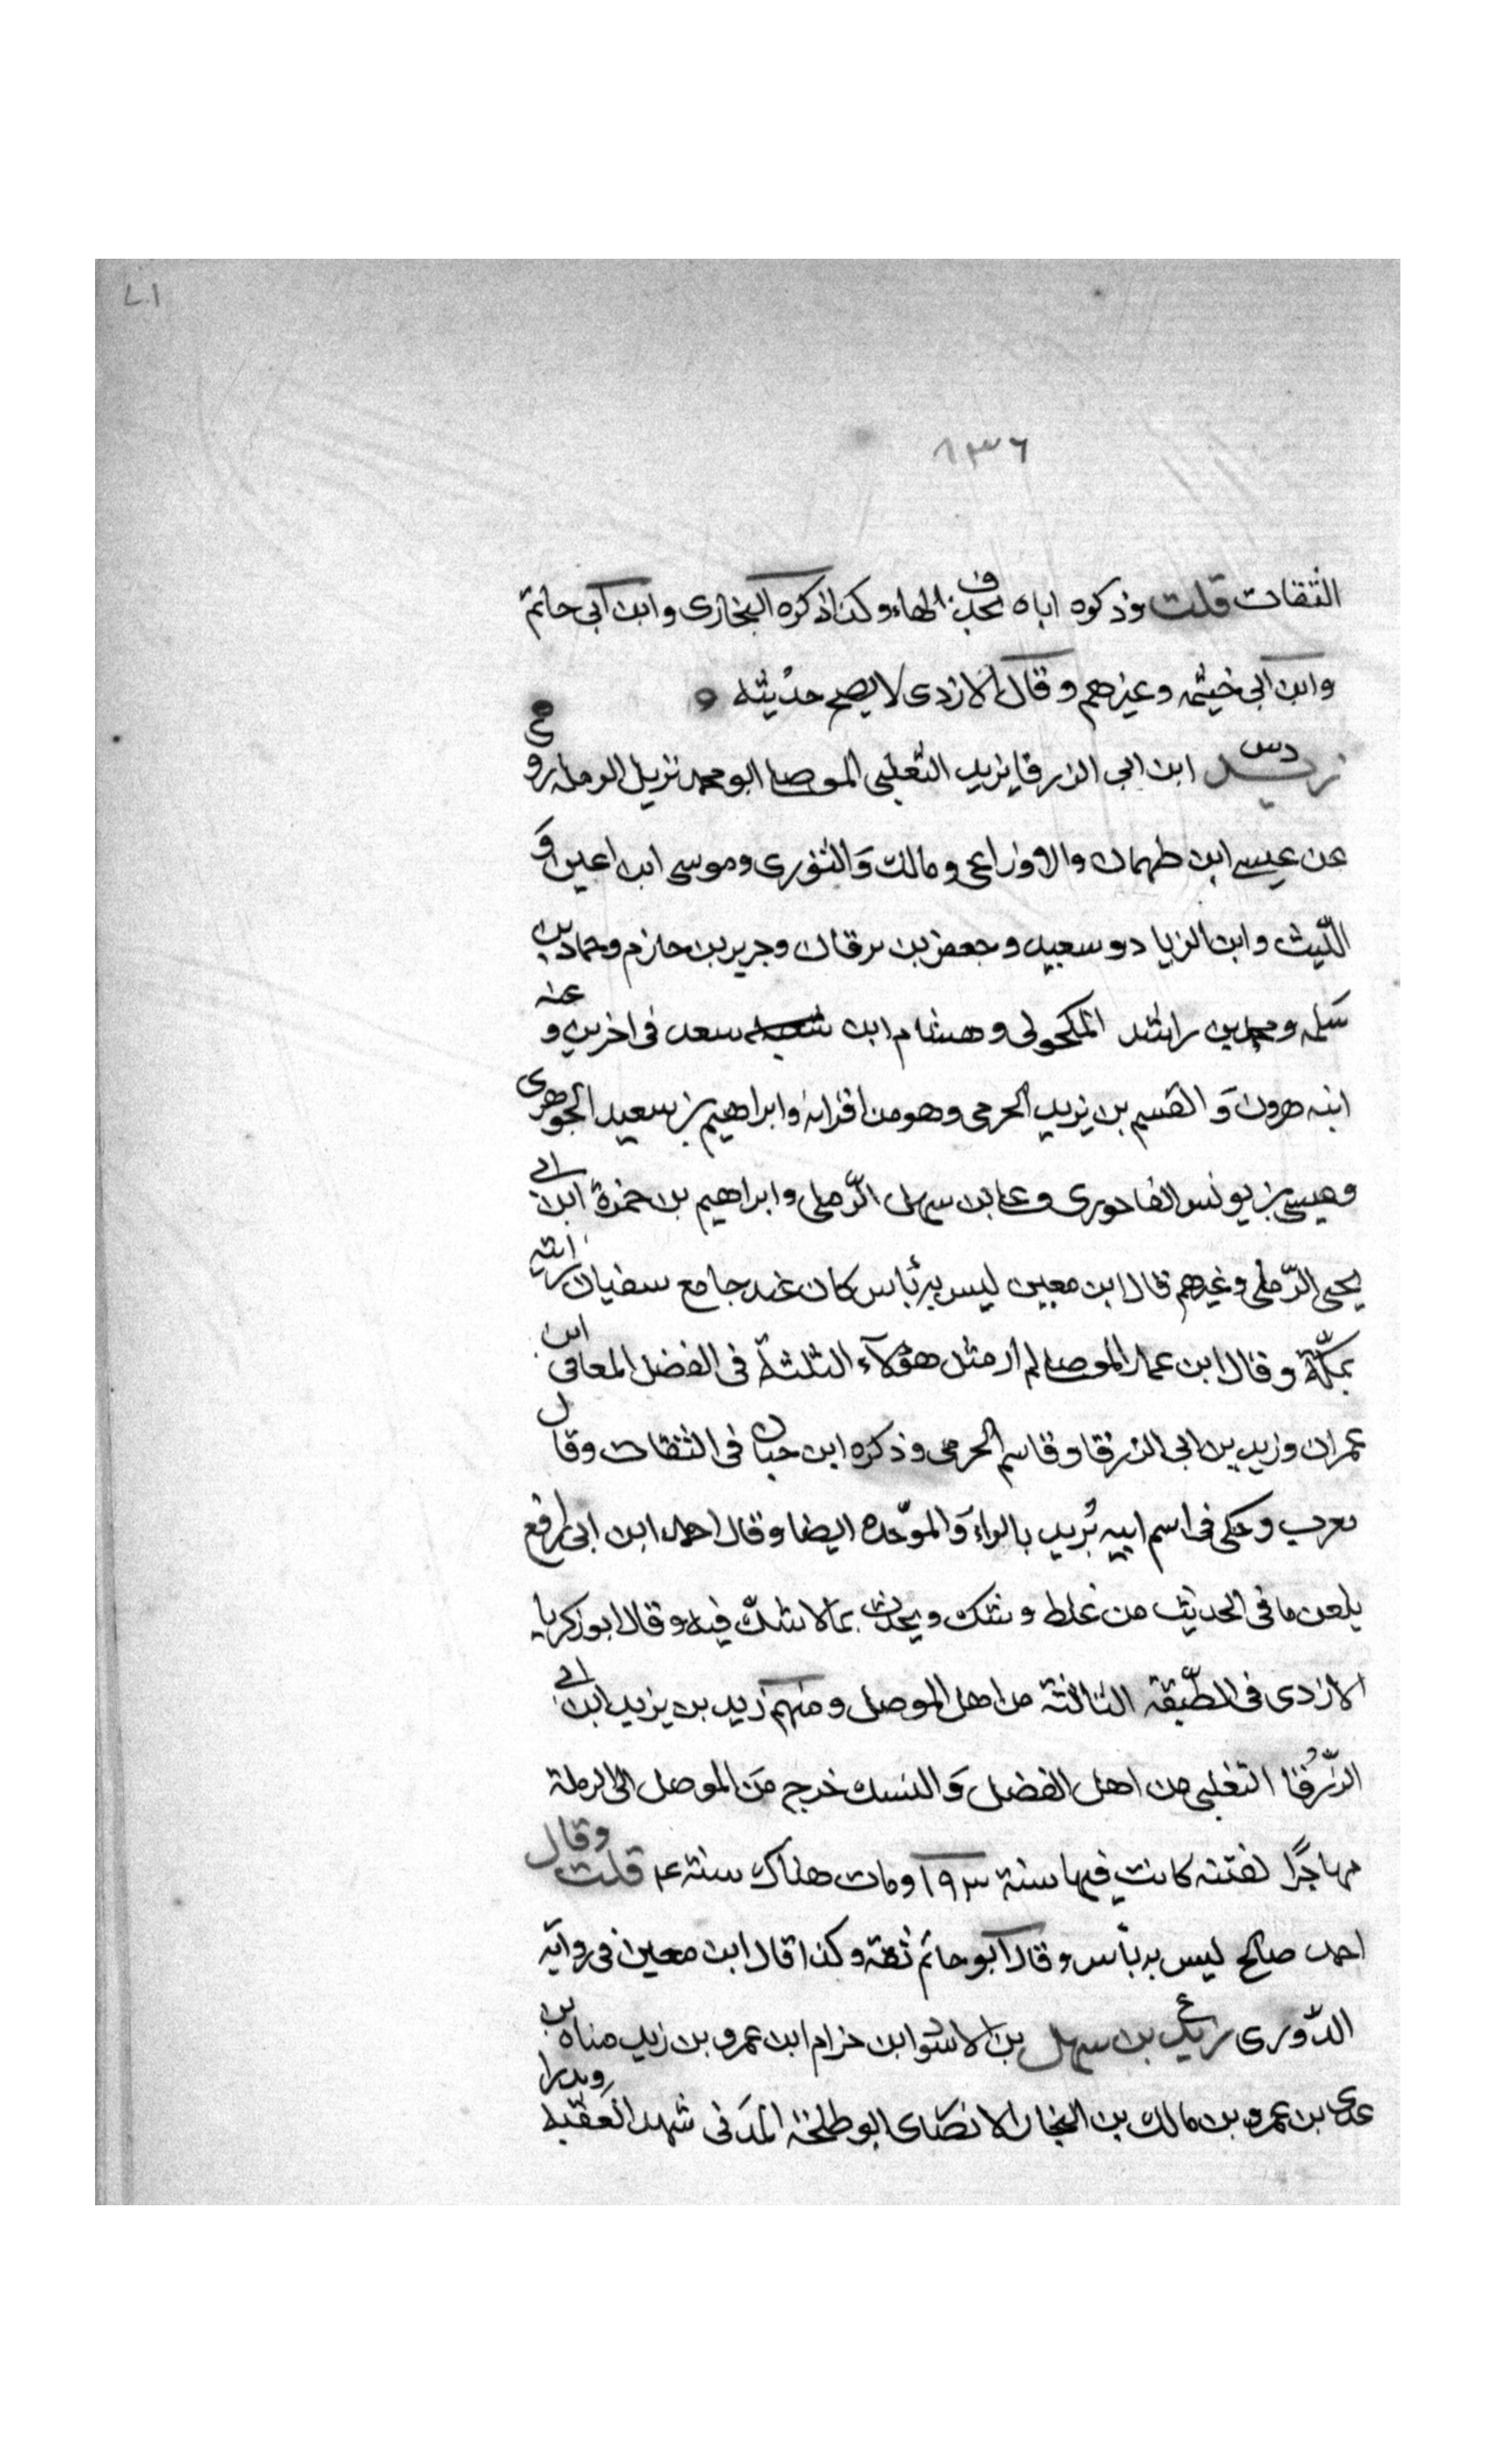 ٨٣٦
الثقات قلت وذكروه اباه بحذف الهاء وكذا ذكره البخارى وابن ابى حاتم
وابن ابى خيثمه وغيرهم وقال الازدى لا يصح حديثه
زيد دس ابن ابى الزرقا يزيد الثعلبى الموصلى ابو محمد نزيل الرمله روى
عن عيسى ابن طهمان والاوزاعى ومالك والثورى وموسى ابن اعين و
الليث وابن الزياد وسعيد وجعفر بن برقان وجرير بن حازم وحماد بن
سلمه ومحمد بن راشد المكحولى وهشام ابن سعد فى اخرين وعنه
ابنه هرون والقسم بن يزيد الجرمى وهو من اقرانه وابراهيم بن سعيد الجوهرى
وعيسى بن يونس الفاخورى وعلى بن سهل الرملى وابراهيم بن حمزة ابن ابى
يحيى الرملى وغيرهم قال ابن معين ليس به باس كان عنده جامع سفيان رايته
بمكة وقال ابن عمار الموصلى لم ار مثل هؤلاء الثلثة فى الفضل المعافى ابن
عمران وزيد بن ابى الزرقا وقاسم الجرمى وذكره ابن حبان فى الثقات وقال
يعرب وحكى فى اسم ابيه بُريد بالراء والموحده ايضا وقال احمد ابن ابى رافع
يلعن ما فى الحديث من غلط وشك ويحدث بما لا شك فيه وقال ابو زكريا
الازدى فى الطبقة الثالثة من اهل الموصل ومنهم زيد بن يزيد ابن ابى
الزرقا التغلبى من اهل الفضل والنسك خرج من الموصل الى الرملة
مهاجرًا لفتنه كانت فيها سنة ١٩٣ ومات هناك سنة ٤ قلت وقال
احمد صالح ليس به بأس وقال ابو حاتم ثقة وكذا قال ابن معين فى رواية
الدورى زيد ع بن سهل بن الاسود ابن حرام ابن عمرو بن زيد مناه بن
عدى بن عمرو بن مالك بن النجار الانصارى ابو طلحة المدنى شهد العقبة وبدرا